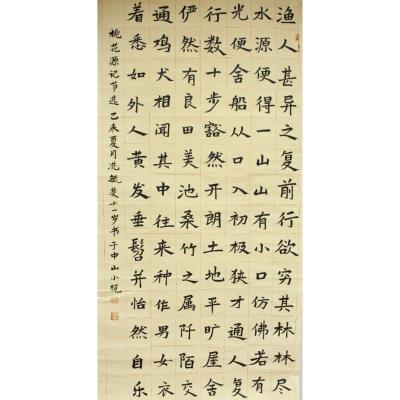 渔人甚异之复前行欲穷其林林尽
水源便得一山山有小口仿佛若有
光便舍船从口入初极狭才通人复
行数十步豁然开朗土地平旷屋舍
俨然有良田美池桑竹之属阡陌交
通鸡犬相闻其中往来种作男女衣
着悉如外人黄发垂髫并怡然自乐
桃花源记节选 乙未夏月冼毓斐十一岁书于中山小榄